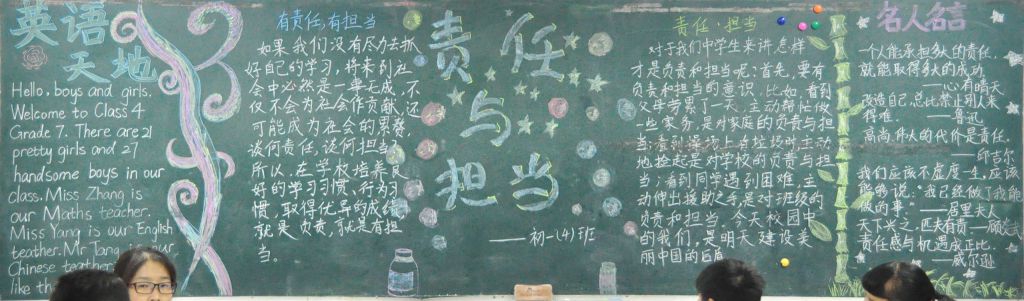 英语
天地
Hello, boys and girls.
Welcome to Class 4
Grade 7. There are 21
pretty girls and 27
handsome boys in our
class. Miss Zhang is
our Maths teacher.
Miss Yang is our English
teather. Mr Tang is our
Chinese teather
like th
有责任,有担当
如果我们没有尽力去抓
好自己的学习，将来到社
会中必将是一事无成，不
仅不会为社会作贡献，还
可能成为社会的累赘，
谈何责任，谈何担当？
所以，在学校培养良
好的学习习惯、行为习
惯，取得优异的成绩，
就是负责，就是有担
当。
责任
与
担当
——初一(4)班
责任·担当
对于我们中学生来讲怎样
才是负责和担当呢？首先，要有
负责和担当的意识，比如，看到
父母劳累了一天，主动帮忙做
一些家务，是对家庭的负责与担
当；看到操场上有垃圾时，主动
地捡起是对学校的负责与担
当；看到同学遇到困难，主
动伸出援助之手，是对班级的
负责和担当。今天校园中
的我们，是明天建设美
丽中国的巨
名人名言
一个人能承担多大的责任，
就能取得多大的成功
——心有晴天
改造自己，总比禁止别人来
得难。——鲁迅
高尚伟大的代价是责任。
——丘吉尔
我们应该不虚度一生，应该
能够说，"我已经做了我能
做的事"。——居里夫人
天下兴亡，匹夫有责——顾炎武
责任感与机遇成正比。
——威尔逊